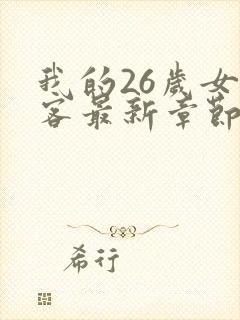 我的26歲女
客最新章節
希行